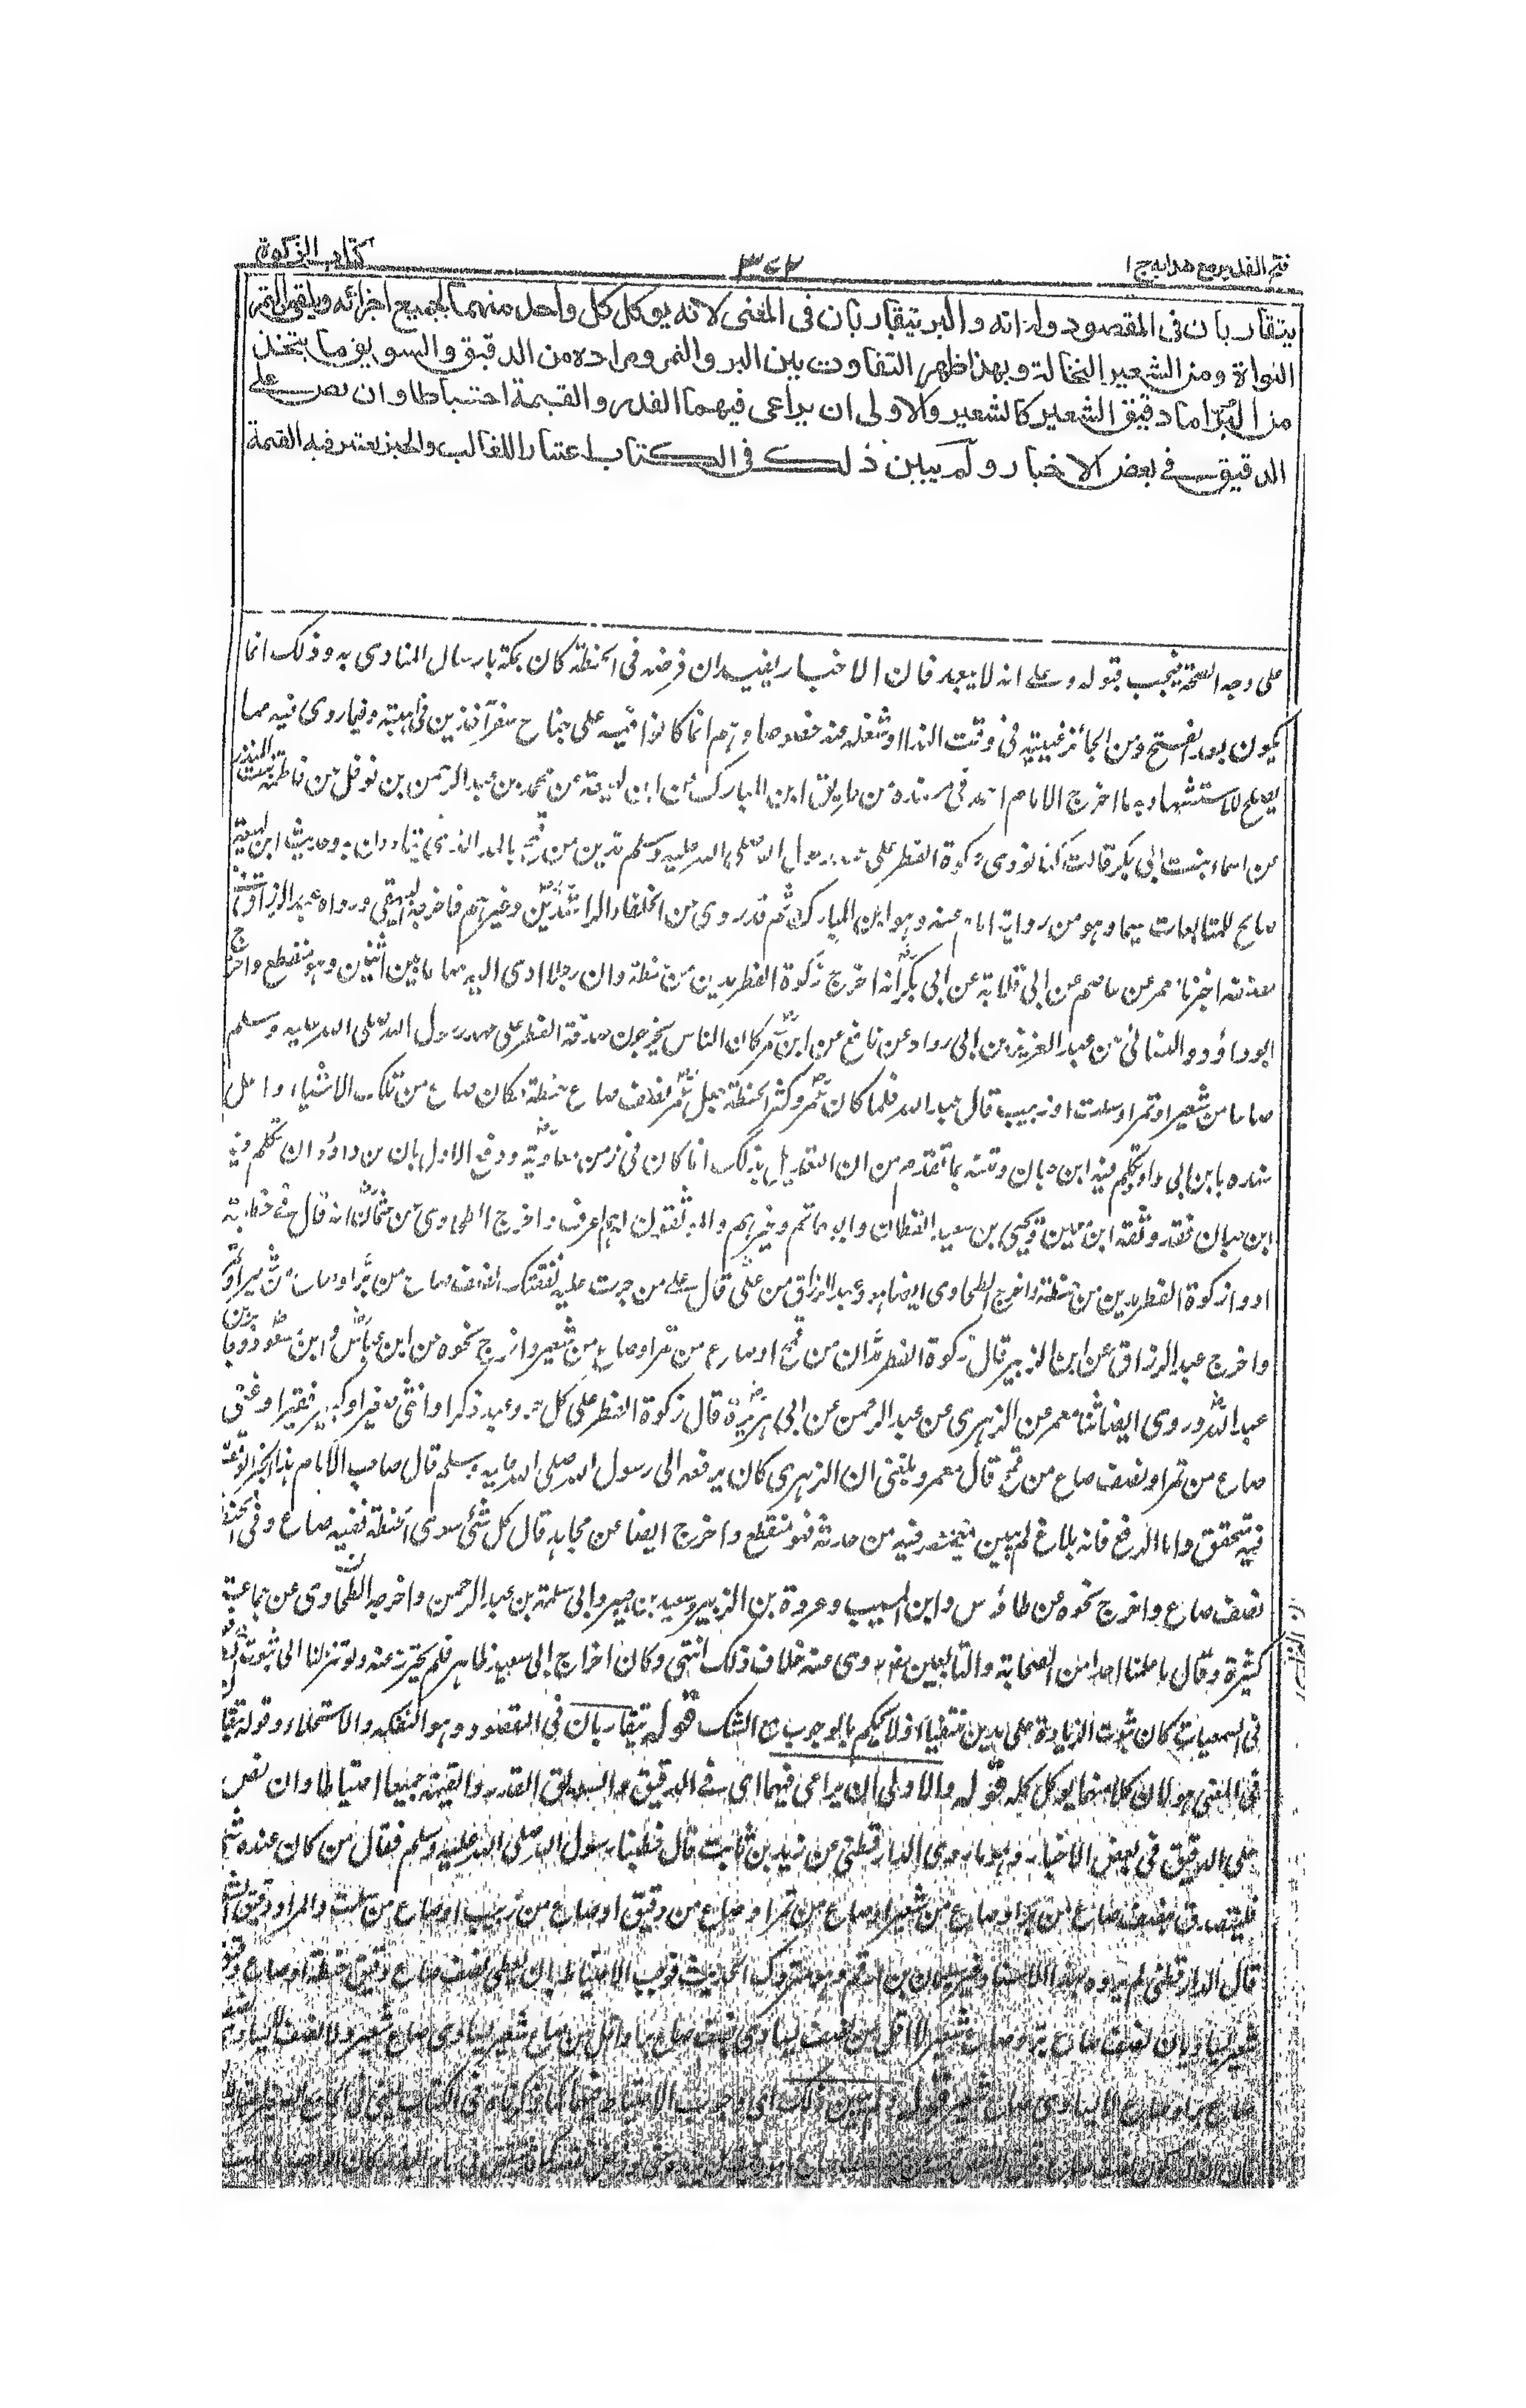 فتح القدير مع هدايه ج ١
٣٧٢
كتاب الزكوة
يتقاربان فى المقصود وله انه والبر يتقاربان فى المعنى لانه يوكل كل واحد منهما بجميع اجزائه ويلقى من التمر
النواة ومن الشعير النخالة وبهذا ظهر التفاوت بين البر والتمر ومراده من الدقيق والسويق ما يتخذ
من البر اما دقيق الشعير كالشعير والاولى ان يراعى فيهما القدر والقيمة احتياطا وان نص على
الدقيق فى بعض الاخبار ولم يبين ذلك فى الكتاب اعتبارا للغالب والخبز يعتبر فيه القيمة
على وجه الصحة فيجب قبوله وعلى انه لا يبعد فان الاخبار يفيد ان فرضه فى الحنطة كان بمكة بارسال المنادى به وذلك انما
يكون بعد الفتح ومن الجائز غيبته فى وقت الندا او شغله عنه خصوصا وهم انما كانوا فيه على جناح سفر آخذين فى اهبته وفيما روى فيه مما
يصلح للاستشهاد به ما اخرج الامام احمد فى مسنده من طريق ابن المبارك عن ابن لهيعة عن محمد بن عبد الرحمن بن نوفل عن فاطمة بنت المنذر
عن اسماء بنت ابى بكر قالت كنا نودى زكوة الفطر على عهد رسول الله صلى الله عليه وسلم مدين من قمح بالمد الذى يقتاتون به وحديث ابن لهيعة
صالح للمتابعات سيما وهو من رواية امام عنه وهو ابن المبارك ثم قد روى عن الخلفاء الراشدين وغيرهم فاخرج البيهقى ورواه عبد الرزاق
اخبرنا معمر عن عاصم عن ابى قلابة عن ابى بكر انه اخرج زكوة الفطر مدين من حنطة وان رجلا ادى اليه صاعا بين اثنين وهو منقطع واخرج
ابو داؤد والنسائى عن عبد العزيز بن ابى رواد عن نافع عن ابن عمر كان الناس يخرجون صدقة الفطر على عهد رسول الله صلى الله عليه وسلم
صاعا من شعير او تمر او سلت او زبيب قال عبد الله فلما كان عمر وكثر الحنطة جعل عمر نصف صاع حنطة مكان صاع من تلك الاشياء واعل
سنده بابن ابى رواد تكلم فيه ابن حبان ومتنه بما تقدم من ان التعديل بذلك انما كان فى زمن معاوية ودفع الاول بان ان تكلم فيه
ابن حبان فقد وثقه ابن معين ويحيى بن سعيد القطان وابو حاتم وغيرهم والموثقون له اعرف واخرج الطحاوى عن عثمان انه قال فى خطبته
ادوا زكوة الفطر مدين من حنطة واخرج الطحاوى ايضا وعبد الرزاق عن على قال على من جرت عليه نفقتك نصف صاع من بر او صاع من شعير او تمر
واخرج عبد الرزاق عن ابن الزبير قال زكوة الفطر مدان من قمح او صاع من تمر او صاع من شعير واخرج نحوه عن ابن عباس وابن مسعود وجابر بن
عبد الله وروى ايضا ثنا معمر عن الزهرى عن عبد الرحمن عن ابى هريرة قال زكوة الفطر على كل حر وعبد ذكر او انثى صغير او كبير فقير او غنى
صاع من تمر او نصف صاع من قمح قال معمر وبلغنى ان الزهرى كان يرفعه الى رسول الله صلى الله عليه وسلم قال صاحب الامام هذا الخبر الوقف
فيه متحقق واما الرفع فانه بلاغ لم يبين معمر فيه من حدثه فهو منقطع واخرج ايضا عن مجاهد قال كل شئ سوى الحنطة ففيه صاع وفى الحنطة
نصف صاع واخرج نحوه عن طاؤس وابن المسيب وعروة بن الزبير وسعيد بن جبير وابى سلمة بن عبد الرحمن واخرجه الطحاوى عن جماعة
كثيرة وقال ما علمنا احدا من الصحابة والتابعين روى عنه خلاف ذلك انتهى وكان اخراج ابى سعيد ظاهر فلم يحترز عنه ولو تنزلنا الى ثبوت
فى السمعيات كان ثبوت الزيادة على مدين منتفيا اذ لا يحكم بالوجوب مع الشك قوله يتقاربان فى المقصود وهو التفكه والاستحلاء وقوله يتقا
فى المعنى هو لان كلا منهما يوكل كله قوله والاولى ان يراعى فيهما اى فى الدقيق والسويق القدر والقيمة جميعا احتياطا وان نص
على الدقيق فى بعض الاخبار وهو ما روى الدارقطنى عن زيد بن ثابت قال خطبنا رسول الله صلى الله عليه وسلم فقال من كان عنده شئ
فليتصدق بنصف صاع من بر او صاع من شعير او صاع من تمر او صاع من دقيق او صاع من زبيب او صاع من سلت والمراد دقيق الشعير
قال الدارقطنى لم يروه بهذا الاسناد غير سليمان بن ارقم وهو متروك الحديث فوجب الاحتياط بان يعطى نصف صاع دقيق حنطة او صاع دقيق
شعير يساويان نصف صاع بر وصاع شعير لا اقل من نصف يساوى نصف صاع بر او اقل من صاع يساوى صاع شعير ولا نصف لا يساوى
صاع بر او صاع لا يساوى صاع شعير قوله ولم يبين ذلك اى وجوب الاحتياط